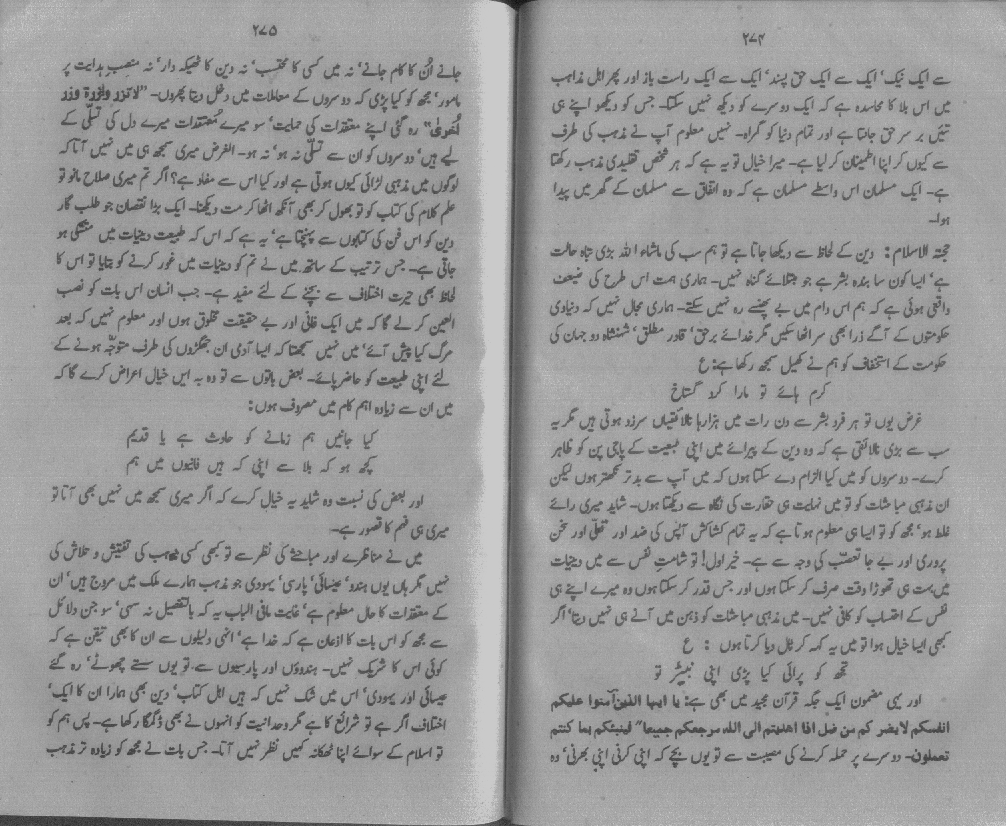 ۲۷۴
سے ایک نیک، ایک سے ایک حق پسند، ایک سے ایک راست باز اور پھر اہل مذاہب
میں اس بلا کا محاسدہ ہے کہ ایک دوسرے کو دیکھ نہیں سکتا۔ جس کو دیکھو اپنے ہی
تئیں بر سر حق جانتا ہے اور تمام دنیا کو گمراہ۔ نہیں معلوم آپ نے مذہب کی طرف
سے کیوں کر اپنا اطمینان کر لیا ہے۔ میرا خیال تو یہ ہے کہ ہر شخص تقلیدی مذہب رکھتا
ہے۔ ایک مسلمان اس واسطے مسلمان ہے کہ وہ اتفاق سے مسلمان کے گھر میں پیدا
ہوا۔
حجتہ الاسلام: دین کے لحاظ سے دیکھا جاتا ہے تو ہم سب کی ماشاء اللہ بڑی تباہ حالت
ہے، ایسا کون سا بندہ بشر ہے جو مبتلائے گناہ نہیں۔ ہماری ہمت اس طرح کی ضعیف
واقعی ہوئی ہے کہ ہم اس دام میں بے پھنسے رہ نہیں سکتے۔ ہماری مجال نہیں کہ دنیاوی
حکومتوں کے آگے ذرا بھی سر اٹھا سکیں مگر خدائے برحق، قادر مطلق، شنشاہ دو جہان کی
حکومت کے استخفاف کو ہم نے کھیل سمجھ رکھا ہے: ع
کرم ہائے تو مارا کرد گستاخ
غرض یوں تو ہر فرد بشر سے دن رات میں ہزارہا نالائقیاں سرزد ہوتی ہیں مگر یہ
سب سے بڑی نالائقی ہے کہ وہ دین کے پیرائے میں اپنی طبیعت کے پاجی پن کو ظاہر
کرے۔ دوسروں کو میں کیا الزام دے سکتا ہوں کہ میں آپ سے بدتر گھتر ہوں لیکن
ان مذہبی مباحثات کو تو میں نہایت ہی حقارت کی نگاہ سے دیکھتا ہوں۔ شاید میری رائے
غلط ہو، مجھ کو تو ایسا ہی معلوم ہوتا ہے کہ یہ تمام کشاکش آپس کی ضد اور تعلّی اور سخن
پروری اور بے جا تعصّب کی وجہ سے ہے۔ خیر اول! تو شامتِ نفس سے میں دینیات
میں بہت ہی تھوڑا وقت صرف کر سکتا ہوں اور جس قدر کر سکتا ہوں وہ میرے اپنے ہی
نفس کے احتساب کو کافی نہیں۔ میں مذہبی مباحثات کو ذہن میں آنے ہی نہیں دیتا، اگر
کبھی ایسا خیال ہوا تو میں یہ کہہ کر ٹال دیا کرتا ہوں : ع
تجھ کو پرائی کیا پڑی اپنی نبیڑ تو
اور یہی مضمون ایک جگہ قرآن مجید میں بھی ہے: یا ایہا الذین آمنوا علیکم
انفسکم لا یضر کم من ضل اذا اھتدیتم الی اللہ مرجعکم جمیعا" فینبئکم بما کنتم
تعملون۔ دوسرے پر حملہ کرنے کی مصیبت سے تو یوں بچے کہ اپنی کرنی اپنی بھرنی، وہ
۲۷۵
جانے اُن کا کام جانے، نہ میں کسی کا محتسب، نہ دین کا ٹھیکہ دار، نہ منصبِ ہدایت پر
مامور، مجھ کو کیا پڑی کہ دوسروں کے معاملات میں دخل دیتا پھروں۔ "لا تزر وازرۃ وزر
اُخریٰ" رہ گئی اپنے معتقدات کی حمایت، سو میرے مُعتقدات میرے دل کی تسلّی کے
لیے ہیں، دوسروں کو ان سے تسلّی نہ ہو، نہ ہو۔ الغرض میری سمجھ ہی میں نہیں آتا کہ
لوگوں میں مذہبی لڑائی کیوں ہوتی ہے اور کیا اس سے مفاد ہے؟ اگر تم میری صلاح مانو تو
علم کلام کی کتاب کو تو بھول کر بھی آنکھ اٹھا کر مت دیکھنا۔ ایک بڑا نقصان جو طلب گار
دین کو اس فن کی کتابوں سے پہنچتا ہے، یہ ہے کہ اس کہ طبیعت دینیات میں متشکی ہو
جاتی ہے۔ جس ترتیب کے ساتھ میں نے تم کو دینیات میں غور کرنے کو بتایا تو اس کا
لحاظ بھی حیرت اختلاف سے بچنے کے لئے مفید ہے۔ جب انسان اس بات کو نصب
العین کر لے گا کہ میں ایک فانی اور بے حقیقت مخلوق ہوں اور معلوم نہیں کہ بعد
مرگ کیا پیش آئے، میں نہیں سمجھتا کہ ایسا آدمی ان جھگڑوں کی طرف متوجّہ ہونے کے
لئے اپنی طبیعت کو حاضر پائے۔ بعض باتوں سے تو وہ بہ ایں خیال اعراض کرے گا کہ
میں ان سے زیادہ اہم کام میں مصروف ہوں:
کیا جانیں ہم زمانے کو حادث ہے یا قدیم
کچھ ہو کہ بلا سے اپنی کہ ہیں فانیوں میں ہم
اور بعض کی نسبت وہ شاید یہ خیال کرے کہ اگر میری سمجھ میں نہیں بھی آتا تو
میری ہی فہم کا قصور ہے۔
میں نے مناظرے اور مباحثے کی نظر سے تو کبھی کسی مذہب کی تفتیش و تلاش کی
نہیں مگر ہاں یوں ہندو، عیسائی، پارسی، یہودی جو مذہب ہمارے ملک میں مروج ہیں، ان
کے معتقدات کا حال معلوم ہے، غایت مافی الباب یہ کہ بالتفصیل نہ سہی، سو جن دلائل
سے مجھ کو اس بات کا اذعان ہے کہ خدا ہے، انہی دلیلوں سے ان کا بھی تیقن ہے کہ
کوئی اس کا شریک نہیں۔ ہندوؤں اور پارسیوں سے تو یوں سستے چھوٹے، رہ گئے
عیسائی اور یہودی، اس میں شک نہیں کہ ہیں اہل کتاب، دین بھی ہمارا ان کا ایک،
اختلاف اگر ہے تو شرائع کا ہے مگر وحدانیت کو انہوں نے بھی ڈگمگا رکھا ہے۔ پس ہم کو
تو اسلام کے سوائے اپنا ٹھکانہ کہیں نظر نہیں آتا۔ جس بات نے مجھ کو زیادہ تر مذہب